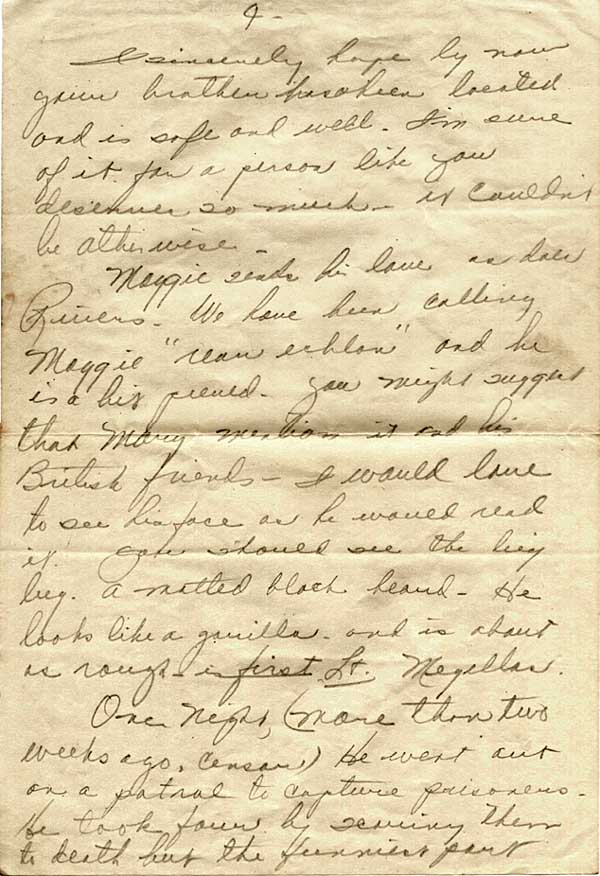 9-
I sincerely hope by now
your brother has been located
and is safe and well - I'm sure
of it for a person like you
deserves so much - it couldn't
be otherwise -
Maggie sends his love as does
Rivers - We have been calling
Maggie "rear echlon" and he
is a bit peeved - You might suggest
that Mary mention it and his
British friends - I would love
to see his face as he would read
it! You should see the big
lug. a matted black beard - He
looks like a gorilla - and is about
as rough - is first Lt. Megellas.
One Night, (more than two
weeks ago, censor) He went out
on a patrol to capture prisoners -
He took four by scaring them
to death but the funniest part